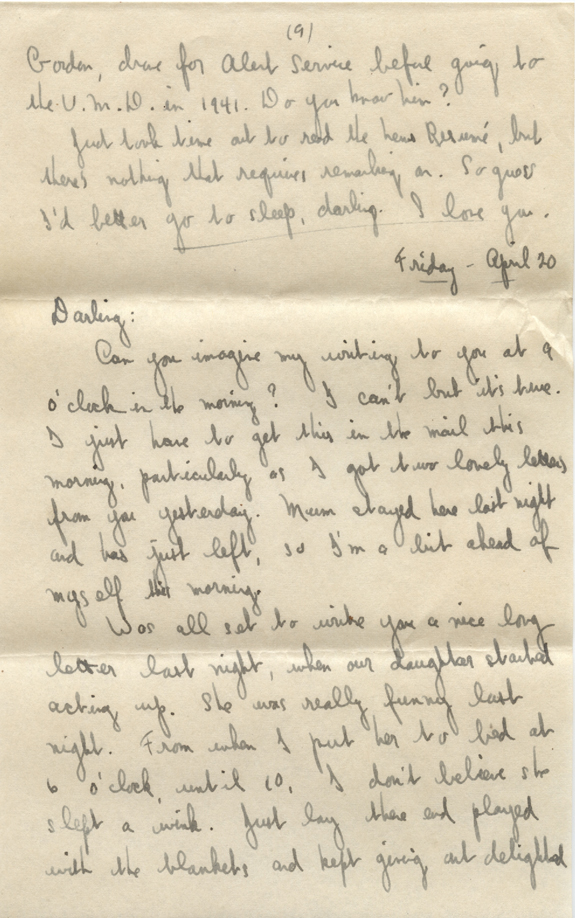 (9)
Gordon, drove for Alert Service before going to
the U.M.D. in 1941. Do you know him?
Just took time out to read the news Resumé, but
there's nothing that requires remarking on. So guess
I'd better go to sleep, darling. I love you.
Friday - April 20
Darling:
Can you imagine my writing to you at 9
o'clock in the morning? I can't but it's true.
I just have to get this in the mail this
morning, particularly as I got two lovely letters
from you yesterday. Mum stayed here last night
and has just left, so I'm a bit ahead of
myself this morning.
Was all set to write you a nice long
letter last night, when our daughter started
acting up. She was really funny last
night. From when I put her to bed at
6 o'clock, until 10, I don't believe she
slept a wink. Just lay there and played
with the blankets and kept giving out delighted